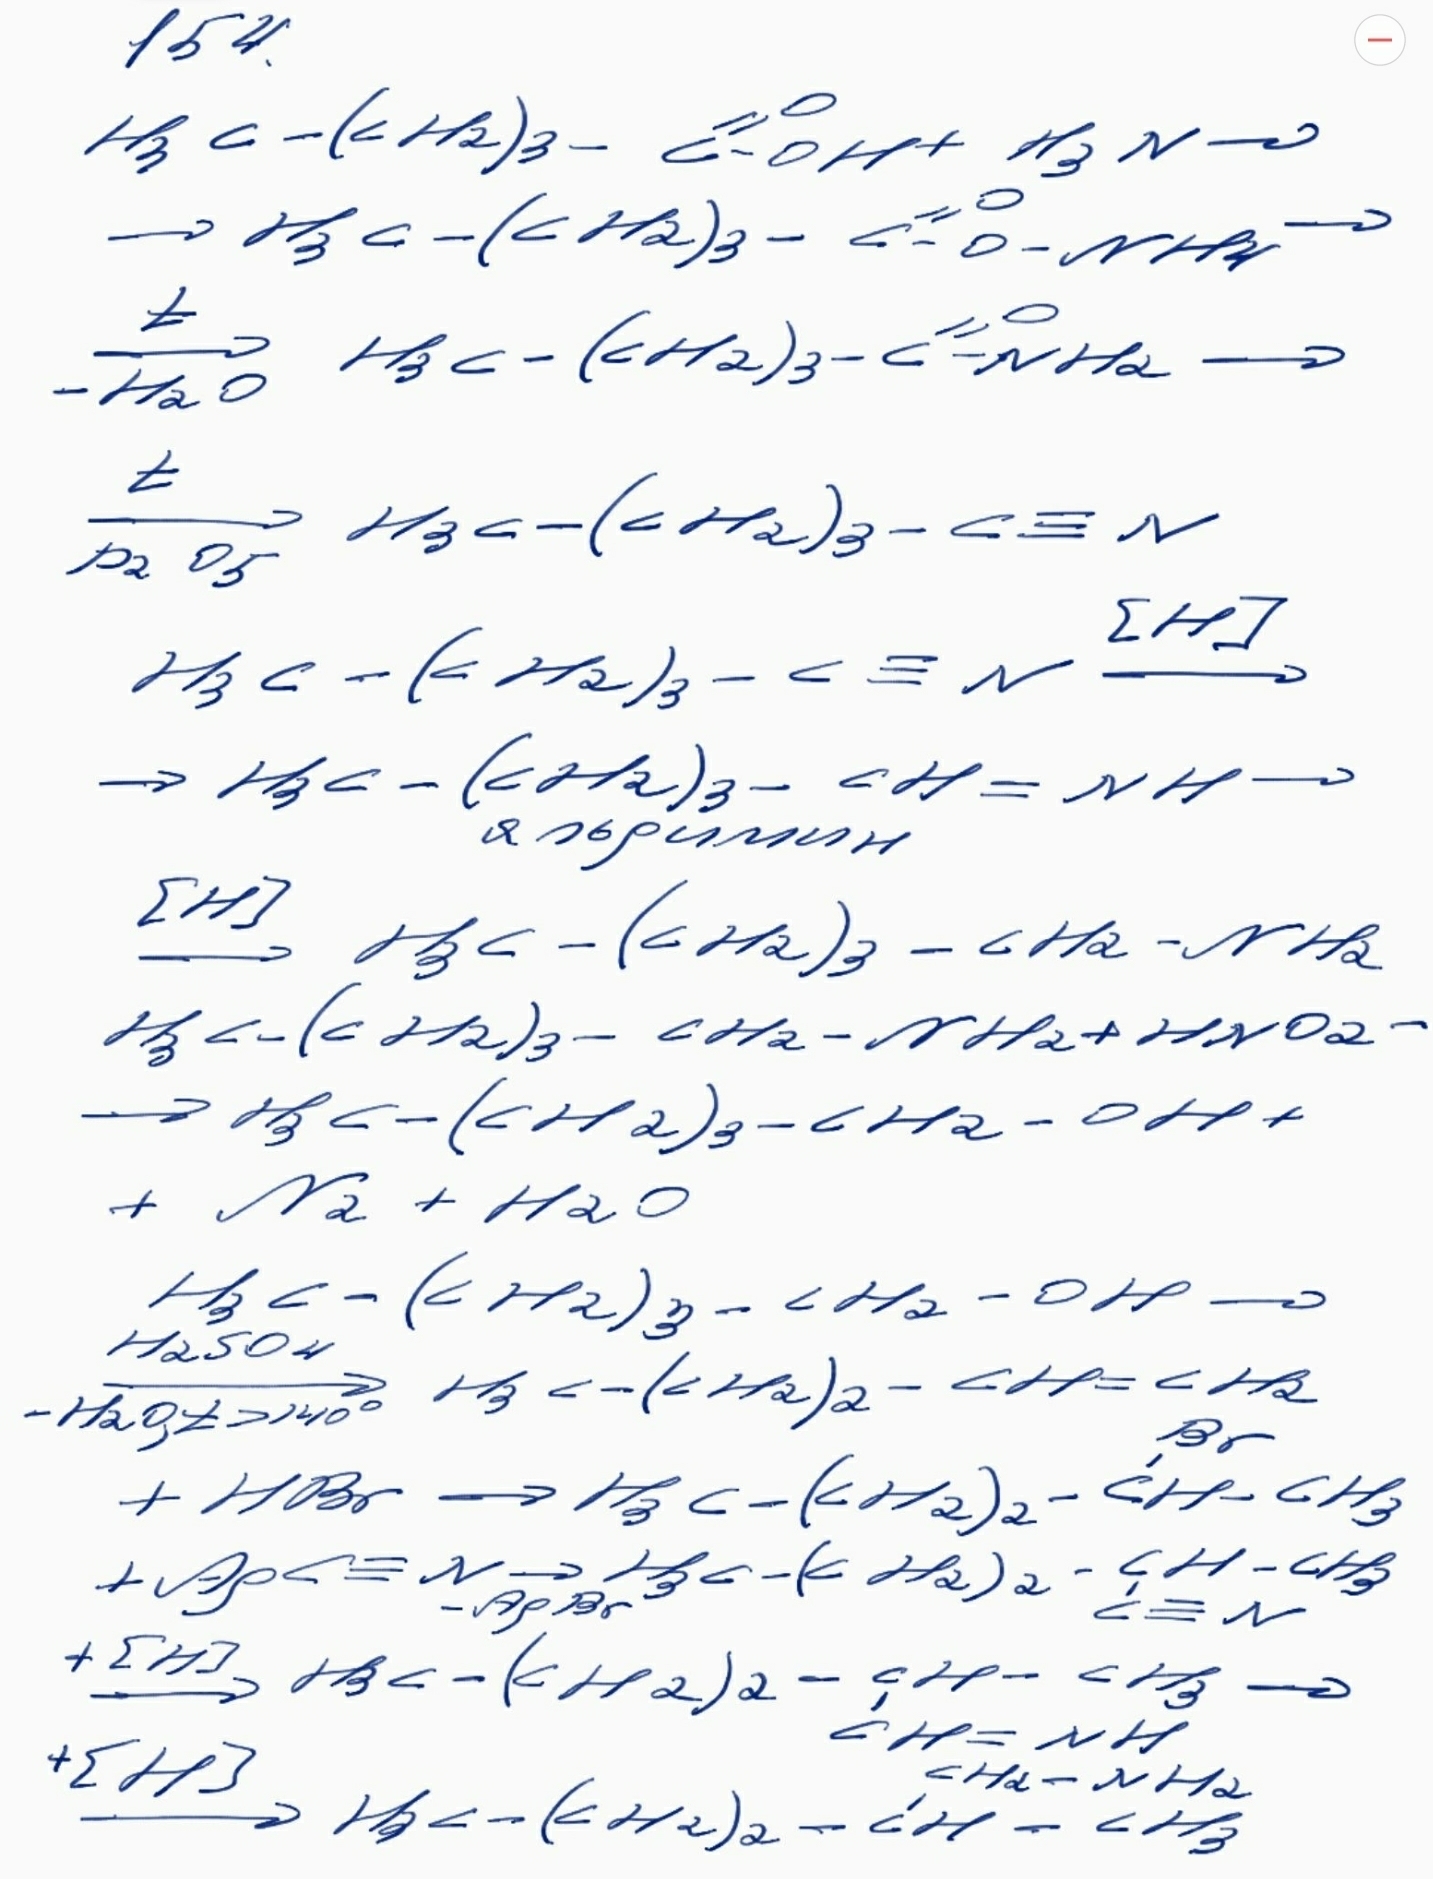 154.
H3C-(CH2)3-C=O-OH+ H3N→
→ H3C-(CH2)3-C=O-O-NH4→
t→-H2O H3C-(CH2)3-C=O-NH2→
t→P2O5 H3C-(CH2)3-C≡N
H3C-(CH2)3-C≡N [H]→
→ H3C-(CH2)3-CH=NH→
альдимин
[H]→ H3C-(CH2)3-CH2-NH2
H3C-(CH2)3-CH2-NH2+HNO2-
→ H3C-(CH2)3-CH2-OH+
+ N2 + H2O
H3C-(CH2)3-CH2-OH→
H2SO4→-H2O,t>140° H3C-(CH2)2-CH=CH2
Br
+ HBr → H3C-(CH2)2-CH-CH3
+AgC≡N→-AgBr H3C-(CH2)2-CH-CH3
C≡N
+[H]→ H3C-(CH2)2-CH-CH3→
CH=NH
CH2-NH2
+[H]→ H3C-(CH2)2-CH-CH3